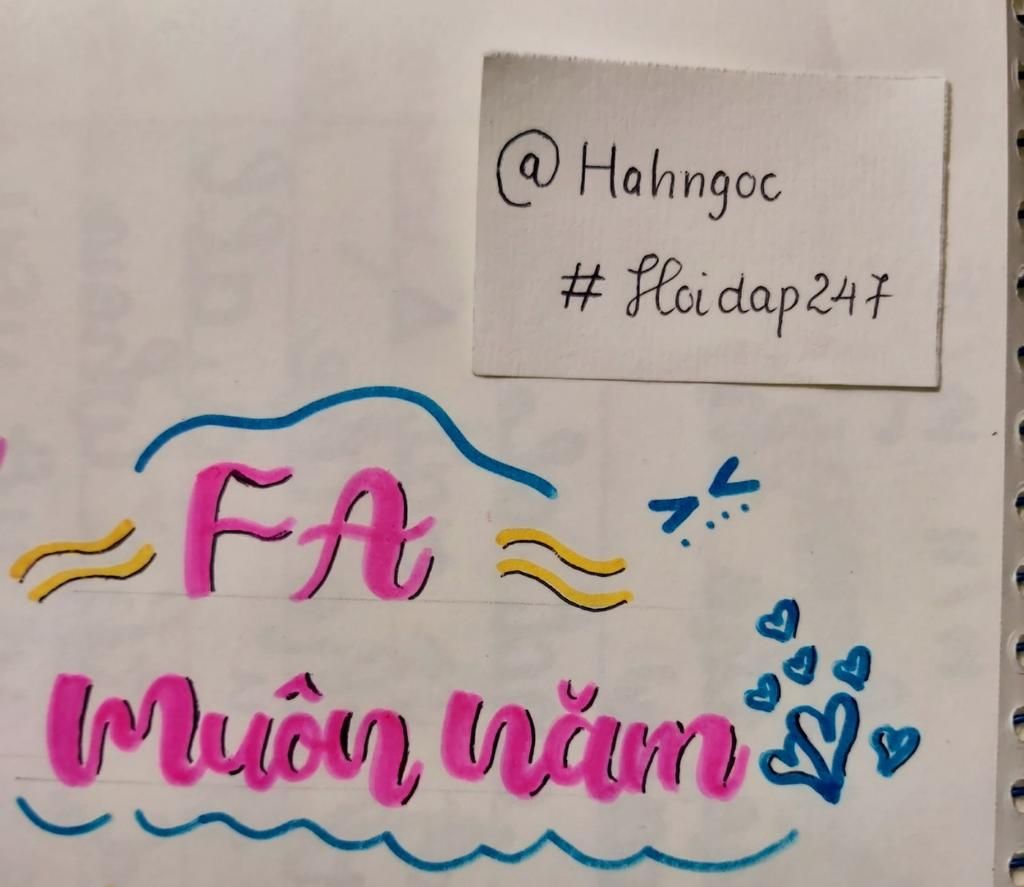 @Hahngoc
#Hoidap247
FA
Muôn năm